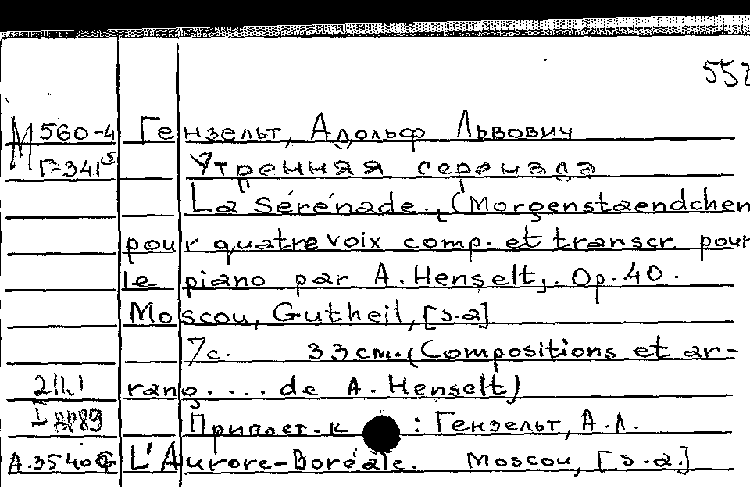 552
М 560-4 Гензельт, Адольф Львович
Г-341 Утренняя серенада
La Sérénade. (Morgenstaendchen
pour quatre voix comp. et transcr. pour
le piano par A. Henselt,. Op. 40.
Moscou, Gutheil, [s.a]
7с. 33 см. (Compositions et ar-
rang.... de A. Henselt)
Приплет. к : Гензельт, А.Л.
L'Aurore-Boréale. Moscou, [s.a.]